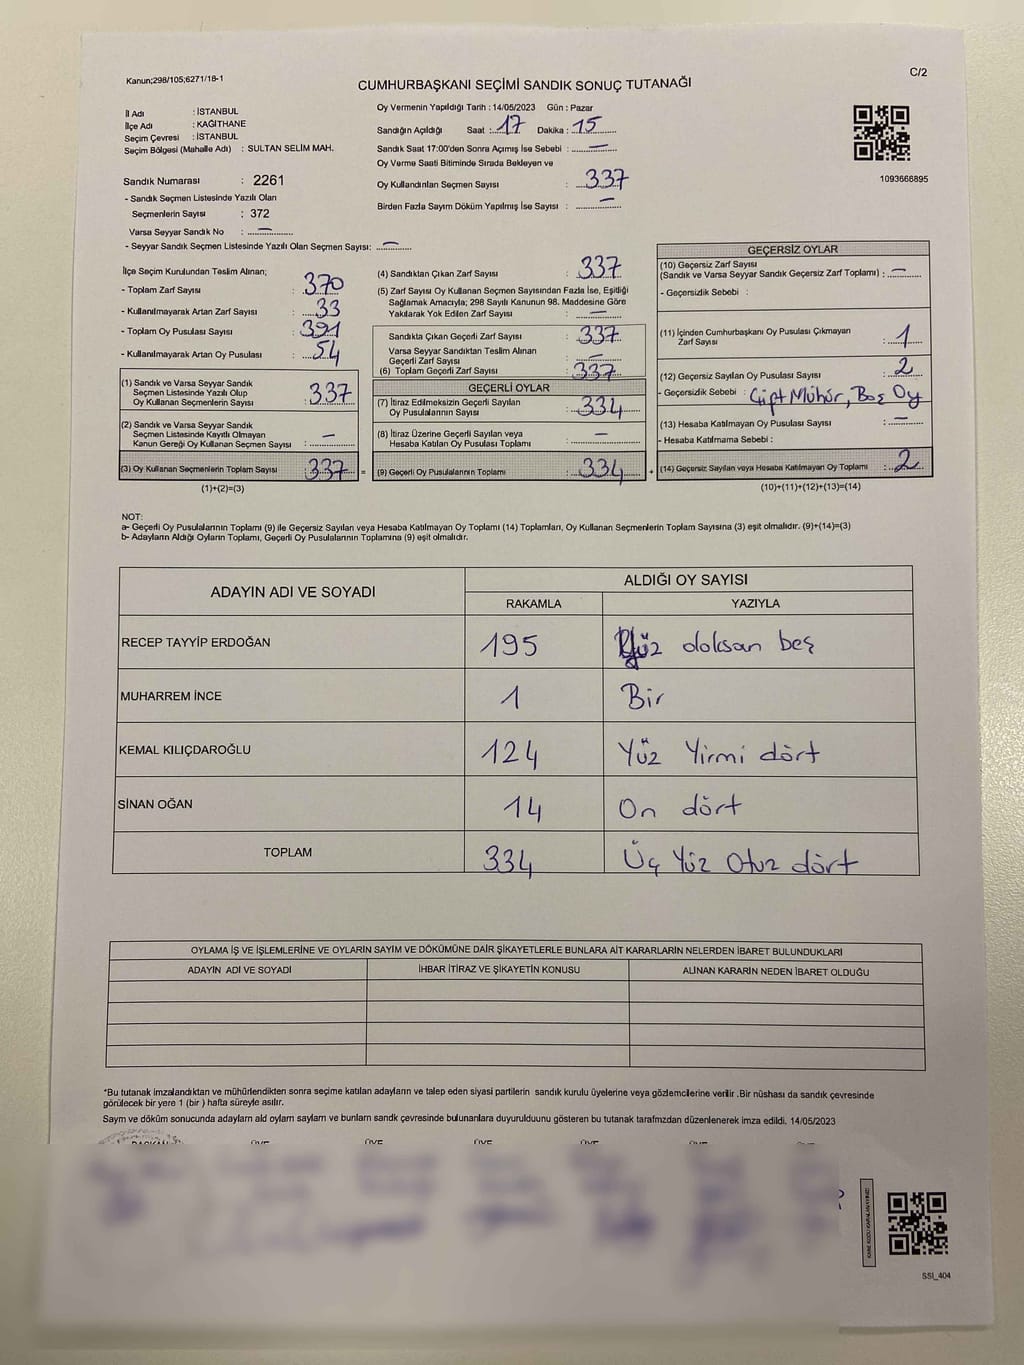 Kanun;298/105;6271/18-1
C/2
CUMHURBAŞKANI SEÇİMİ SANDIK SONUÇ TUTANAĞI
İl Adı : İSTANBUL
İlçe Adı : KAĞITHANE
Seçim Çevresi : İSTANBUL
Seçim Bölgesi (Mahalle Adı) : SULTAN SELİM MAH.
Sandık Numarası : 2261
- Sandık Seçmen Listesinde Yazılı Olan
Seçmenlerin Sayısı : 372
Varsa Seyyar Sandık No : —
- Seyyar Sandık Seçmen Listesinde Yazılı Olan Seçmen Sayısı: —
Oy Vermenin Yapıldığı Tarih : 14/05/2023 Gün : Pazar
Sandığın Açıldığı Saat : 17 Dakika : 15
Sandık Saat 17:00'den Sonra Açımış İse Sebebi : —
Oy Verme Saati Bitiminde Sırada Bekleyen ve
Oy Kullandırılan Seçmen Sayısı : 337
Birden Fazla Sayım Döküm Yapılmış İse Sayısı : —
1093668895
İlçe Seçim Kurulundan Teslim Alınan;
- Toplam Zarf Sayısı : 370
- Kullanılmayarak Artan Zarf Sayısı : 33
- Toplam Oy Pusulası Sayısı : 391
- Kullanılmayarak Artan Oy Pusulası : 54
(1) Sandık ve Varsa Seyyar Sandık
Seçmen Listesinde Yazılı Olup
Oy Kullanan Seçmenlerin Sayısı : 337
(2) Sandık ve Varsa Seyyar Sandık
Seçmen Listesinde Kayıtlı Olmayan
Kanun Gereği Oy Kullanan Seçmen Sayısı : —
(3) Oy Kullanan Seçmenlerin Toplam Sayısı : 337 =
(1)+(2)=(3)
(4) Sandıktan Çıkan Zarf Sayısı : 337
(5) Zarf Sayısı Oy Kullanan Seçmen Sayısından Fazla İse, Eşitliği
Sağlamak Amacıyla; 298 Sayılı Kanunun 98. Maddesine Göre
Yakılarak Yok Edilen Zarf Sayısı : —
Sandıkta Çıkan Geçerli Zarf Sayısı : 337
Varsa Seyyar Sandıktan Teslim Alınan
Geçerli Zarf Sayısı : —
(6) Toplam Geçerli Zarf Sayısı : 337
GEÇERLİ OYLAR
(7) İtiraz Edilmeksizin Geçerli Sayılan
Oy Pusulalarının Sayısı : 334
(8) İtiraz Üzerine Geçerli Sayılan veya
Hesaba Katılan Oy Pusulalarının Sayısı : —
(9) Geçerli Oy Pusulalarının Toplamı : 334 +
GEÇERSİZ OYLAR
(10) Geçersiz Zarf Sayısı
(Sandık ve Varsa Seyyar Sandık Geçersiz Zarf Toplamı) : —
- Geçersizlik Sebebi :
(11) İçinden Cumhurbaşkanı Oy Pusulası Çıkmayan
Zarf Sayısı : 1
(12) Geçersiz Sayılan Oy Pusulası Sayısı : 2
- Geçersizlik Sebebi : Çift Mühür, Boş Oy
(13) Hesaba Katılmayan Oy Pusulası Sayısı : —
- Hesaba Katılmama Sebebi :
(14) Geçersiz Sayılan veya Hesaba Katılmayan Oy Toplamı : 2
(10)+(11)+(12)+(13)=(14)
NOT:
a- Geçerli Oy Pusulalarının Toplamı (9) ile Geçersiz Sayılan veya Hesaba Katılmayan Oy Toplamı (14) Toplamları, Oy Kullanan Seçmenlerin Toplam Sayısına (3) eşit olmalıdır. (9)+(14)=(3)
b- Adayların Aldığı Oyların Toplamı, Geçerli Oy Pusulalarının Toplamına (9) eşit olmalıdır.
ADAYIN ADI VE SOYADI ALDIĞI OY SAYISI
RAKAMLA YAZIYLA
RECEP TAYYİP ERDOĞAN 195 Yüz doksan beş
MUHARREM İNCE 1 Bir
KEMAL KILIÇDAROĞLU 124 Yüz Yirmi dört
SİNAN OĞAN 14 On dört
TOPLAM 334 Üç Yüz Otuz dört
OYLAMA İŞ VE İŞLEMLERİNE VE OYLARIN SAYIM VE DÖKÜMÜNE DAİR ŞİKAYETLERLE BUNLARA AİT KARARLARIN NELERDEN İBARET BULUNDUKLARI
ADAYIN ADI VE SOYADI İHBAR İTİRAZ VE ŞİKAYETİN KONUSU ALINAN KARARIN NEDEN İBARET OLDUĞU
*Bu tutanak imzalandıktan ve mühürlendikten sonra seçime katılan adayların ve talep eden siyasi partilerin sandık kurulu üyelerine veya gözlemcilerine verilir .Bir nüshası da sandık çevresinde
görülecek bir yere 1 (bir ) hafta süreyle asılır.
Sayım ve döküm sonucunda adayların aldı oyların saylam ve bunlarn sandk çevresinde bulunanlara duyurulduunu gösteren bu tutanak tarafmzdan düzenlenerek imza edildi. 14/05/2023
BAŞKAN ÜYE ÜYE ÜYE ÜYE ÜYE ÜYE
SSI_404